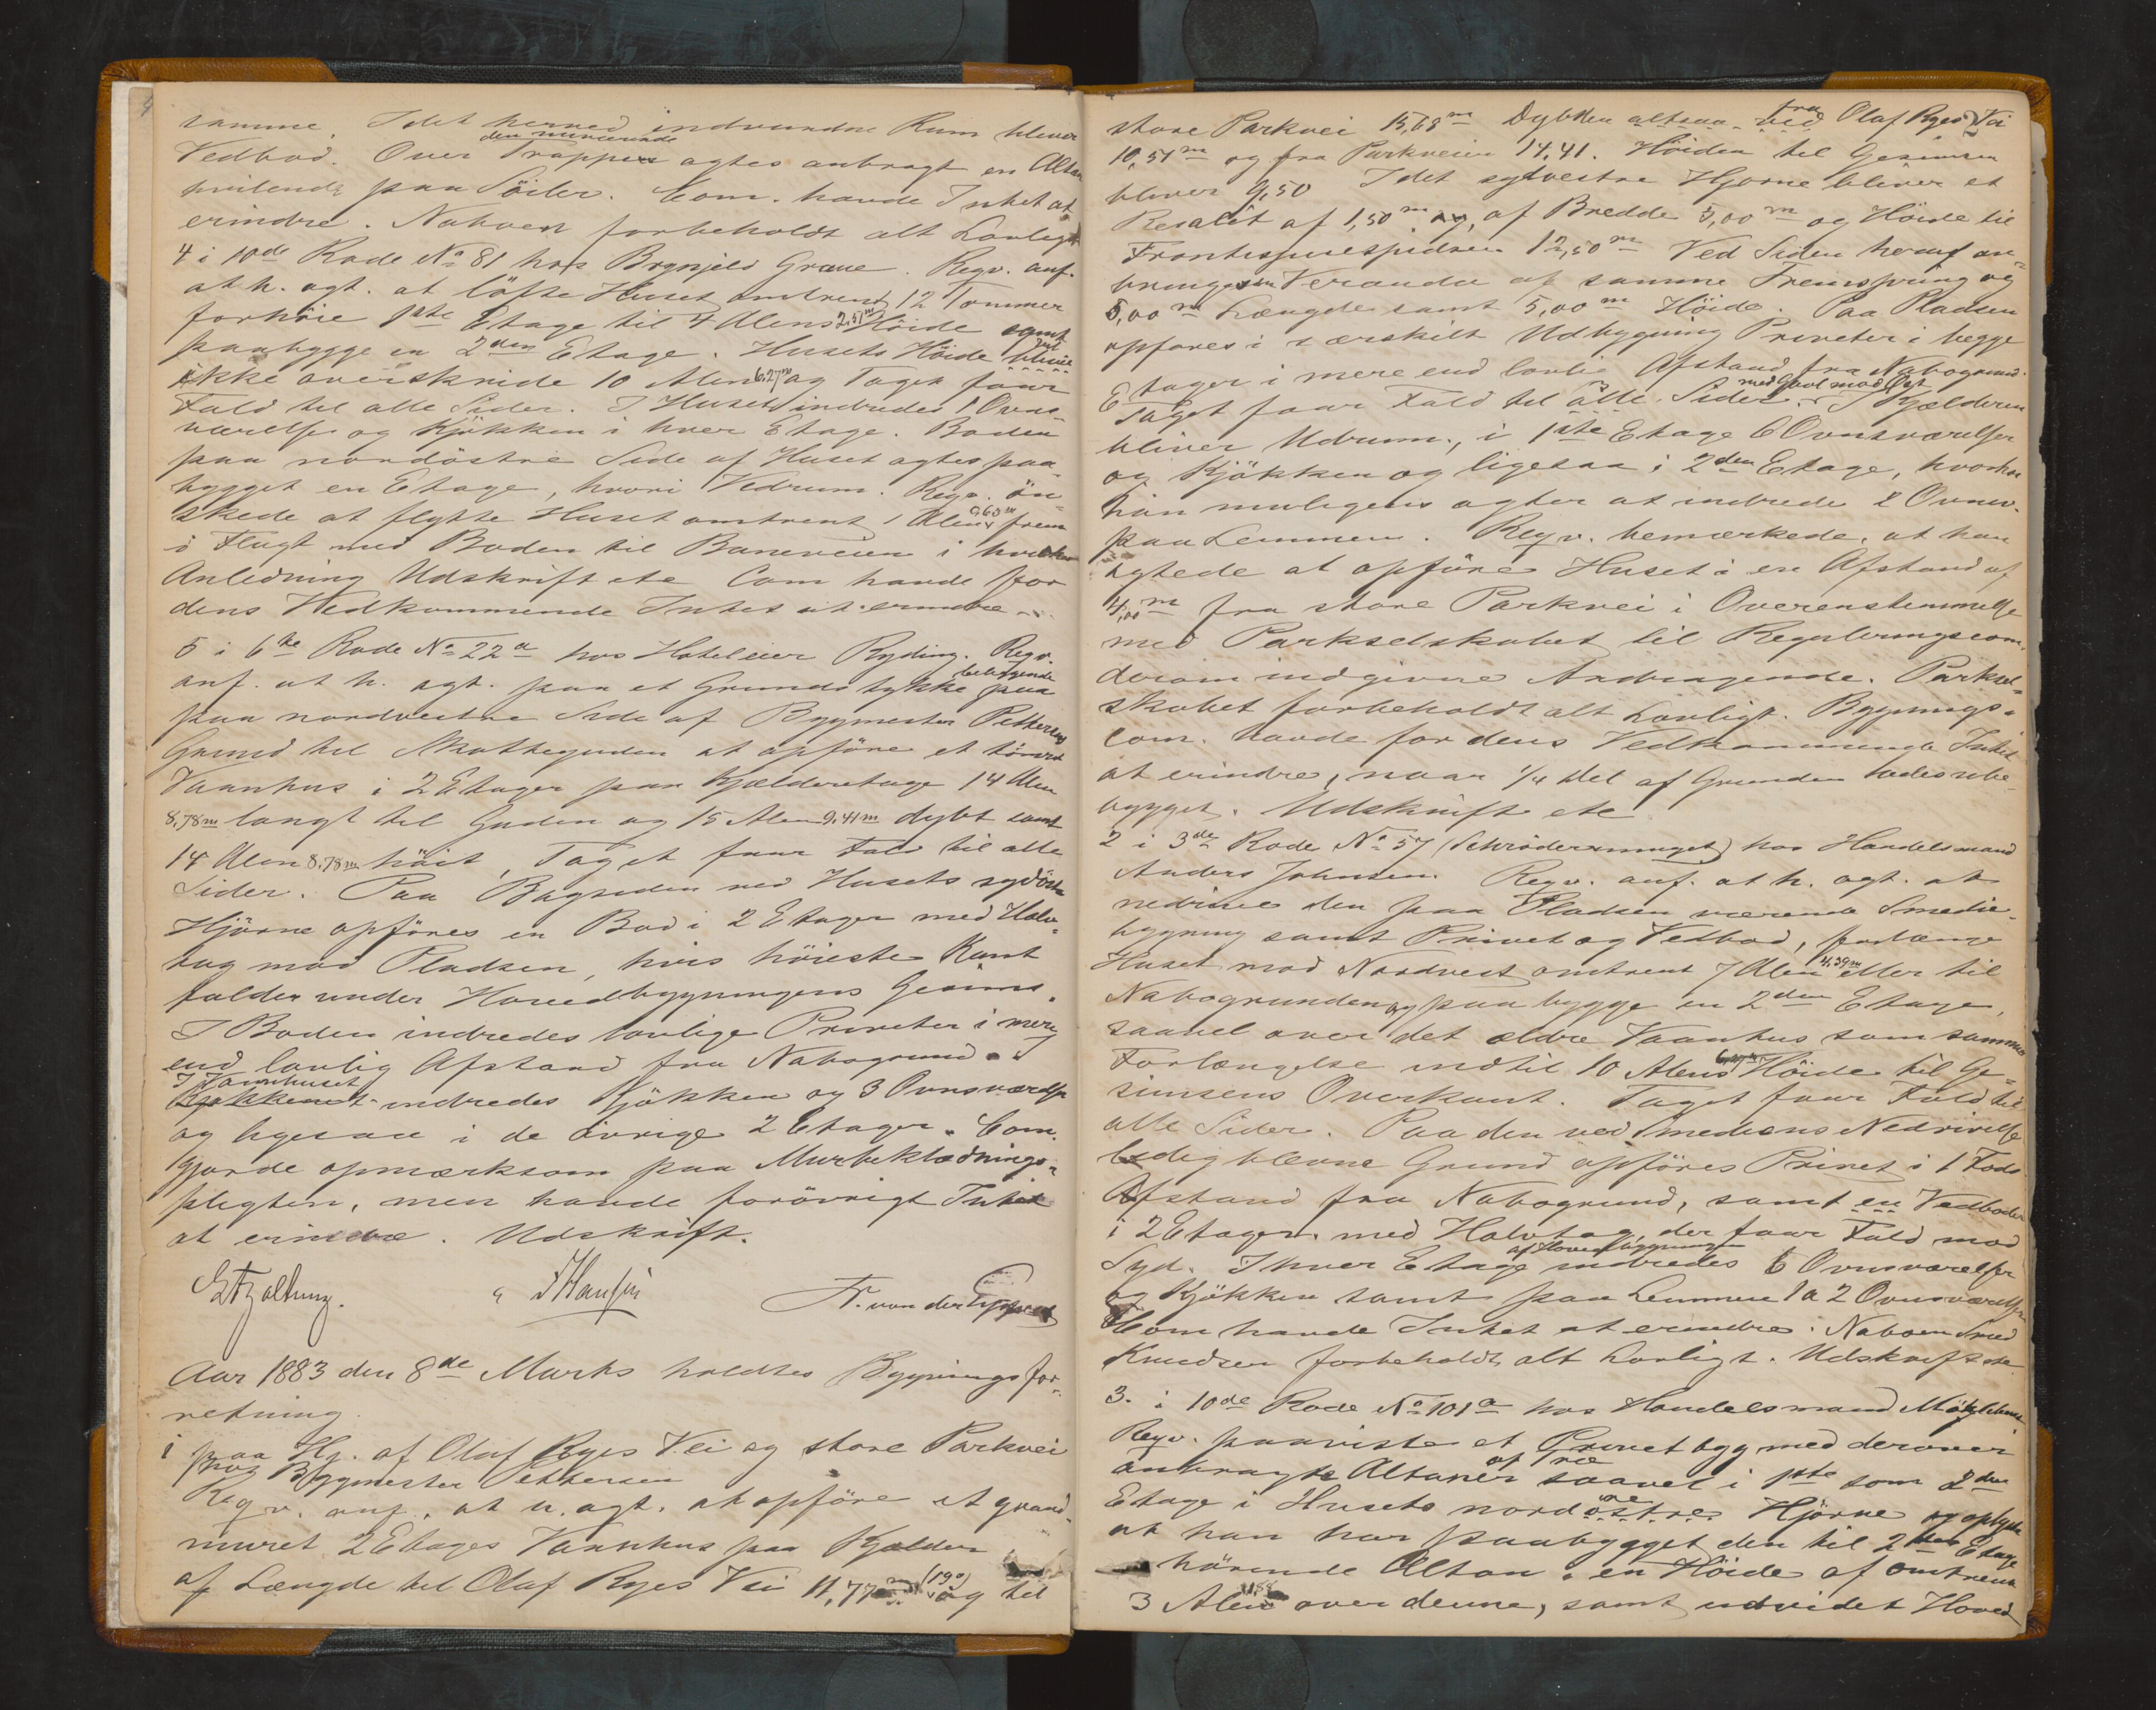 samme. I det herved indvundne Rum bliver
Vedbod. Over den nuværende Trappen agtes anbragt en Altan
hvilende paa Söiler. Com. havde Intet at
erindre. Naboen forbeholdt alt Lovligt
4 i 10de Rode No 81 hos Brynjeld Graue. Reqv. anf.
at h. agt. at löfte Huset omtrent 12 Tommer
forhöie 1ste Etage til 4 Alens 2,51m Höide samt
paabygge en 2den Etage. Husets Höide vil
ikke overskride 10 Alen 6,27m og Taget faar
Fald til alle Sider. I Huset indredes 1 Ovns-
værelse og Kjökken i hver Etage. Boden
paa nordöstre Side af Huset agtes paa-
bygget en Etage, hvori Vedrum. Reqv. ön-
skede at flytte Huset omtrent 1 Alen 0,63m frem
i Flugt med Boden til Baneveien i hvilken
Anledning Udskrift etc Com havde for
dens Vedkommende Intet at erindre
5 i 6te Rode No 22a hos Hoteleier Ryding. Reqv.
anf. at h. agt. paa et Grundstykke beliggende
paa nordvestre Side af Bygmester Pettersens
Grund til Skottegaden at opföre et tömret
Vaanhus i 2 Etager paa Kjælderetage 14 Alen
8,78m langt til Gaden og 15 Alen 9,41m dybt samt
14 Alen 8,78m höit, Taget faar Fald til alle
Sider. Paa Bagsiden ved Husets sydöstre
Hjörne opföres en Bod i 2 Etager med Halv-
tag mod Pladsen, hvis höieste Kant
falder under Hovedbygningens Gesims.
I Boden indredes lovlige Priveter i mere
end lovlig Afstand fra Nabogrund.
I Vaanhuset indredes Kjökken og 3 Ovnsværelser
og ligesaa i de övrige 2 Etager. Com.
gjorde opmærksom paa Murbeklædnings-
pligten, men havde forövrigt Intet
at erindre. Udskrift.
JHansen Fr. von der Lippe
Aar 1883 den 8de Marts holdtes Bygningsfor-
retning
1 paa Hj. af Olaf Ryes Vei og store Parkvei
hos Bygmester Pettersen
Reqv. anf. at h. agt. at opföre et grund-
muret 2 Etages Vaanhus paa Kjælder
af Længde til Olaf Ryes Vei 11,77m (19°) og til
store Parkvei 15,68m Dybden altsaa fra Olaf Ryes Vei
10,51m og fra Parkveien 14,41. Höiden til Gesimsen
bliver 9,50 I det sydvestre Hjörne bliver et
Resalit af 1,50m af Bredde 5,00m og Höide til
Frontispicespidsen 12,50m Ved Siden heraf an-
bringes en Veranda af samme Fremspring og
5,00m Længde samt 5,00m Höide. Paa Pladsen
opföres i særskilt Udbygning Priveter i begge
Etager i mere end lovlig Afstand fra Nabogrund.
Taget faar Fald til alle Sider med Gavl mod Öst. I Kjælderen
bliver Udrum, i 1ste Etage 6 Ovnsværelser
og Kjökken og ligesaa i 2den Etage, hvorhos
han muligens agter at indrede 2 Ovnsv.
paa Lemmen. Reqv. bemærkede, at han
agtede at opföre Huset i en Afstand af
4,00m fra store Parkvei i Overenstemmelse
med Parkselskabet til Reguleringscom.
derom indgivne Andragende. Parksel-
skabet forbeholdt alt Lovligt. Bygnings-
com. havde for dens Vedkommende Intet
at erindre, naar 1/4 Del af Grunden lades ube-
bygget. Udskrift etc
2 i 3de Rode No 57 (Schrödersmuget) hos Handelsmand
Anders Johnsen. Reqv. anf. at h. agt. at
nedrive den paa Pladsen værende Smedie-
bygning samt Privet og Vedbod, forlænge
Huset mod Nordvest omtrent 7 Alen 4,39m eller til
Nabogrunden og paabygge en 2den Etage,
saavel over det ældre Vaanhus som sammes
Forlængelse indtil 10 Alens Höide til Ge-
simsens Overkant. Taget faar Fald til
alle Sider. Paa den ved Smediens Nedrivelse
ledigblevne Grund opföres Privet i 1 Fods
Afstand fra Nabogrund, samt en Vedboder
i 2 Etager med Halvtag, der faar Fald mod
Syd. I hver Etage af Hovedbygningen indredes 6 Ovnsværelser
og Kjökken samt paa Lemmen 1 a 2 Ovnsværelser
Com havde Intet at erindre. Naboen Smed
Knudsen forbeholdt alt Lovligt. Udskrift etc
3. i 10de Rode No 101a hos Handelsmand
Reqv. paaviste et Privet byg med derover
anbragte Altaner af Træ saavel i 1ste som 2den
Etage i Husets nordöstre Hjörne og oplyste
at han har paabygget den til 2den Etage
hörende Altan i en Höide af omtrent
3 Alen 1,88 over denne, samt udvidet Hoved